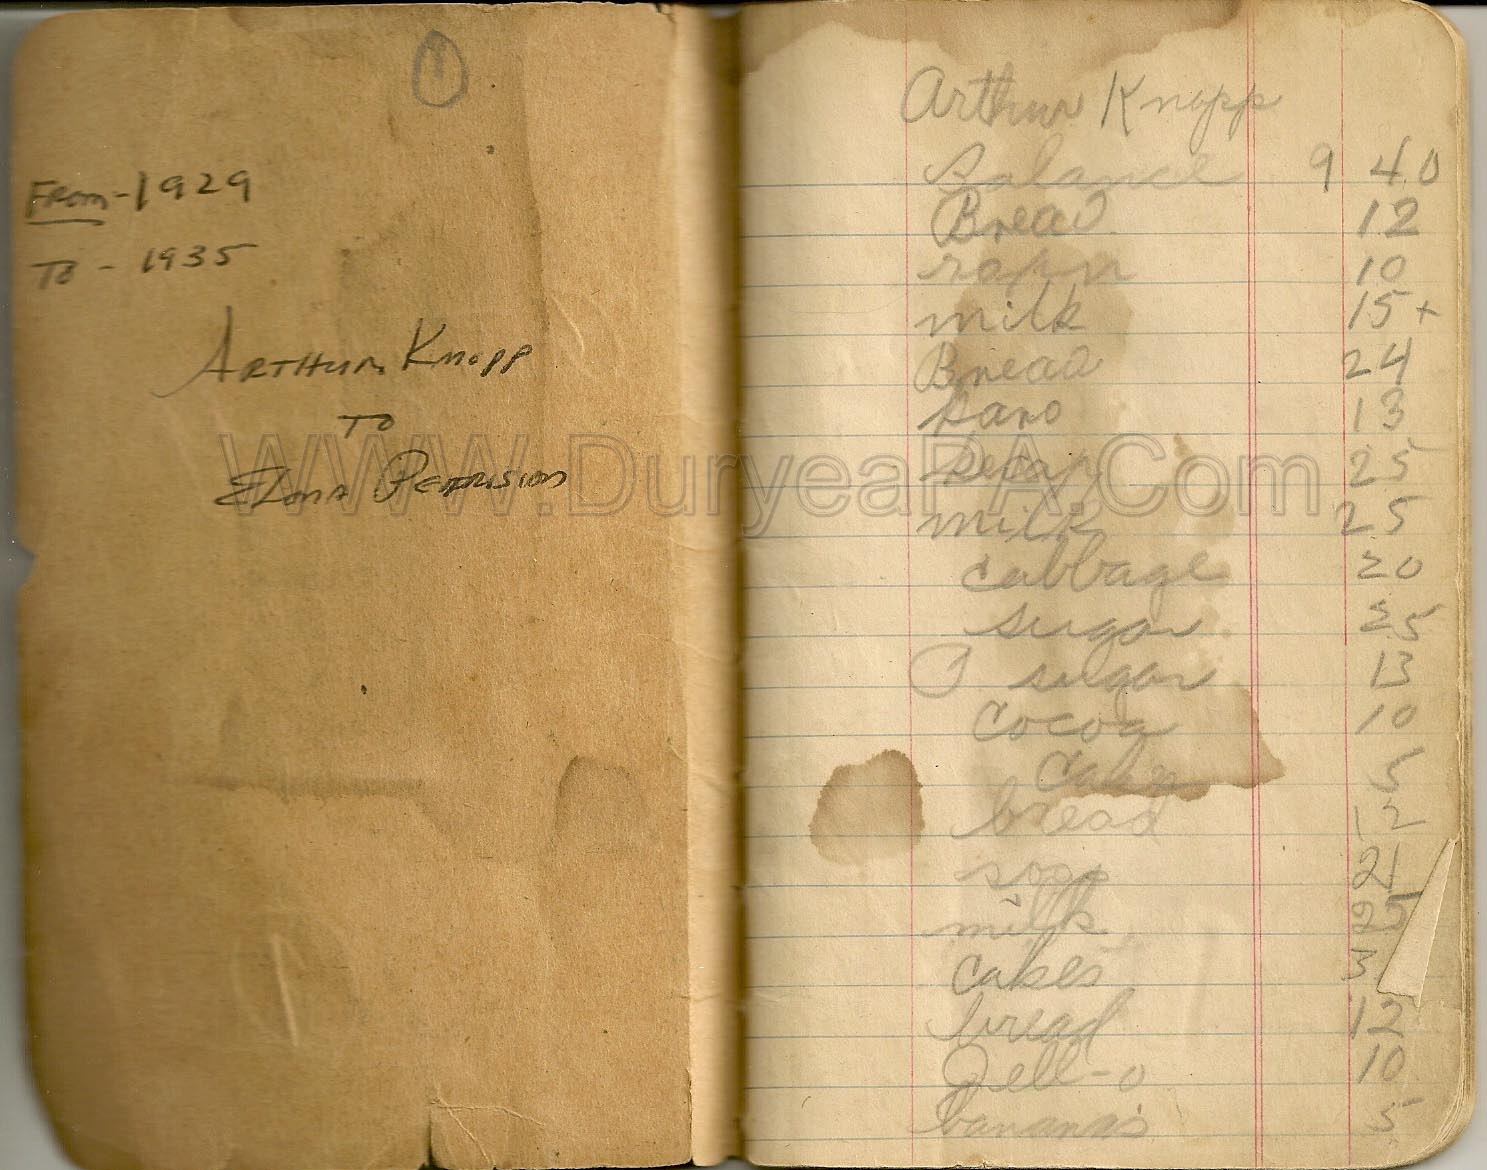 1
From - 1929
To - 1935
Arthur Knopp
To
WWW.DuryeaPA.Com
Arthur Knopp
Balance 9 40
Bread 12
10
milk 15+
Bread 24
Karo 13
soap 25
milk 25
cabbage 20
sugar 25
P sugar 13
Cocoa 10
5
bread 12
soap 21
milk 25
Cakes 3
bread 12
Jell-o 10
bananas 5